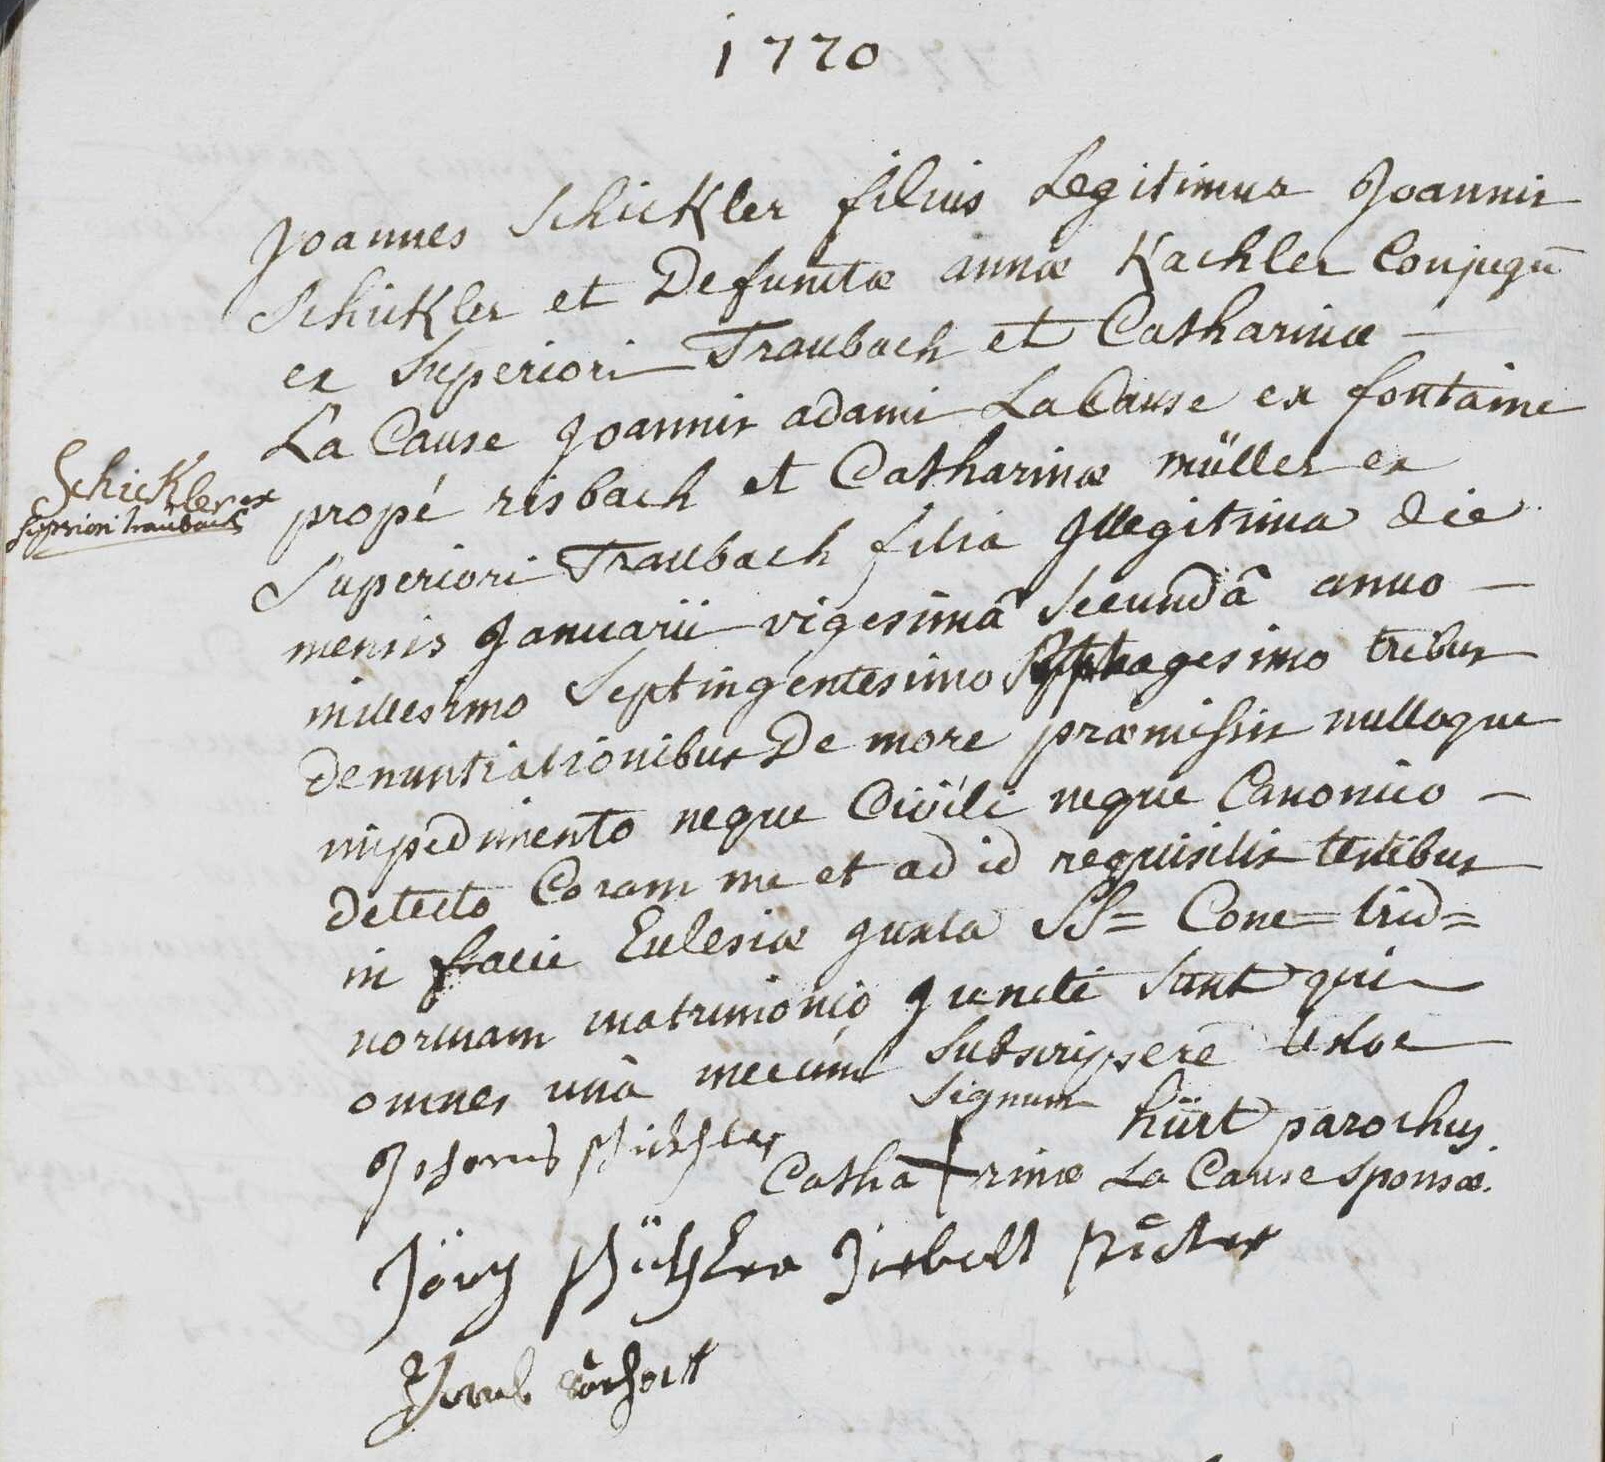 1770
Joannes Schickler filius Legitimus Joannis
Schickler et Defunctæ annæ Kachler Conjugū
ex Superiori Traubach et Catharina
La Cause Joannis adami La Cause ex fontaine
propé risbach et Catharinæ müller ex
Superiori Traubach filia Illegitima die
mensis Januarii vigesimâ Secundâ anno
millesimo Septingentesimo Septuagesimo tribus
Denuntiationibus De more præmissis nulloque
impedimento neque Civili neque Canonico
detecto Coram me et ad id requisitis testibus
in facie Eclesiæ Juxta SS= Conc= trid=
normam matrimonio Juncti Sunt qui
omnes unà mecum Subscripsere testor
hürt parochus
Schickler ex
Superiori traubach
Signum
Catha + rinæ La Cause Sponsæ.